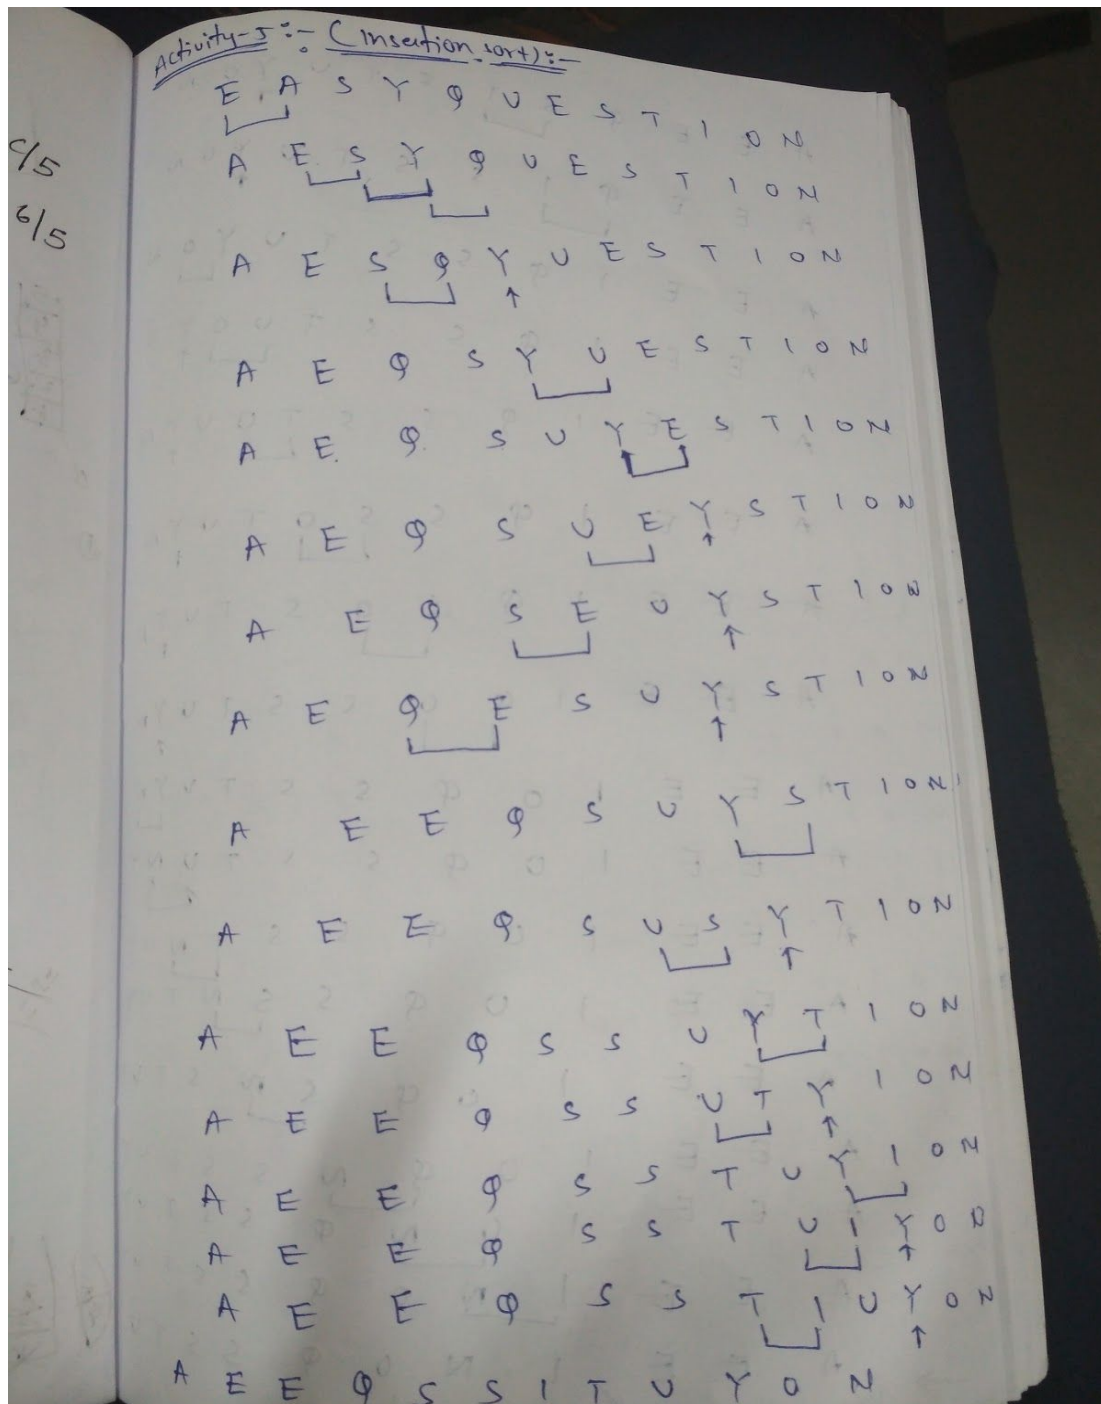 c/5
6/5
Activity-5 :- (Insertion sort):-
E A S Y Q U E S T I O N
A E S Y Q U E S T I O N
A E S Q Y U E S T I O N
A E Q S Y U E S T I O N
A E Q S U Y E S T I O N
A E Q S U E Y S T I O N
A E Q S E U Y S T I O N
A E Q E S U Y S T I O N
A E E Q S U Y S T I O N
A E E Q S U S Y T I O N
A E E Q S S U Y T I O N
A E E Q S S U T Y I O N
A E E Q S S T U Y I O N
A E E Q S S T U I Y O N
A E E Q S S T I U Y O N
A E E Q S S I T U Y O N